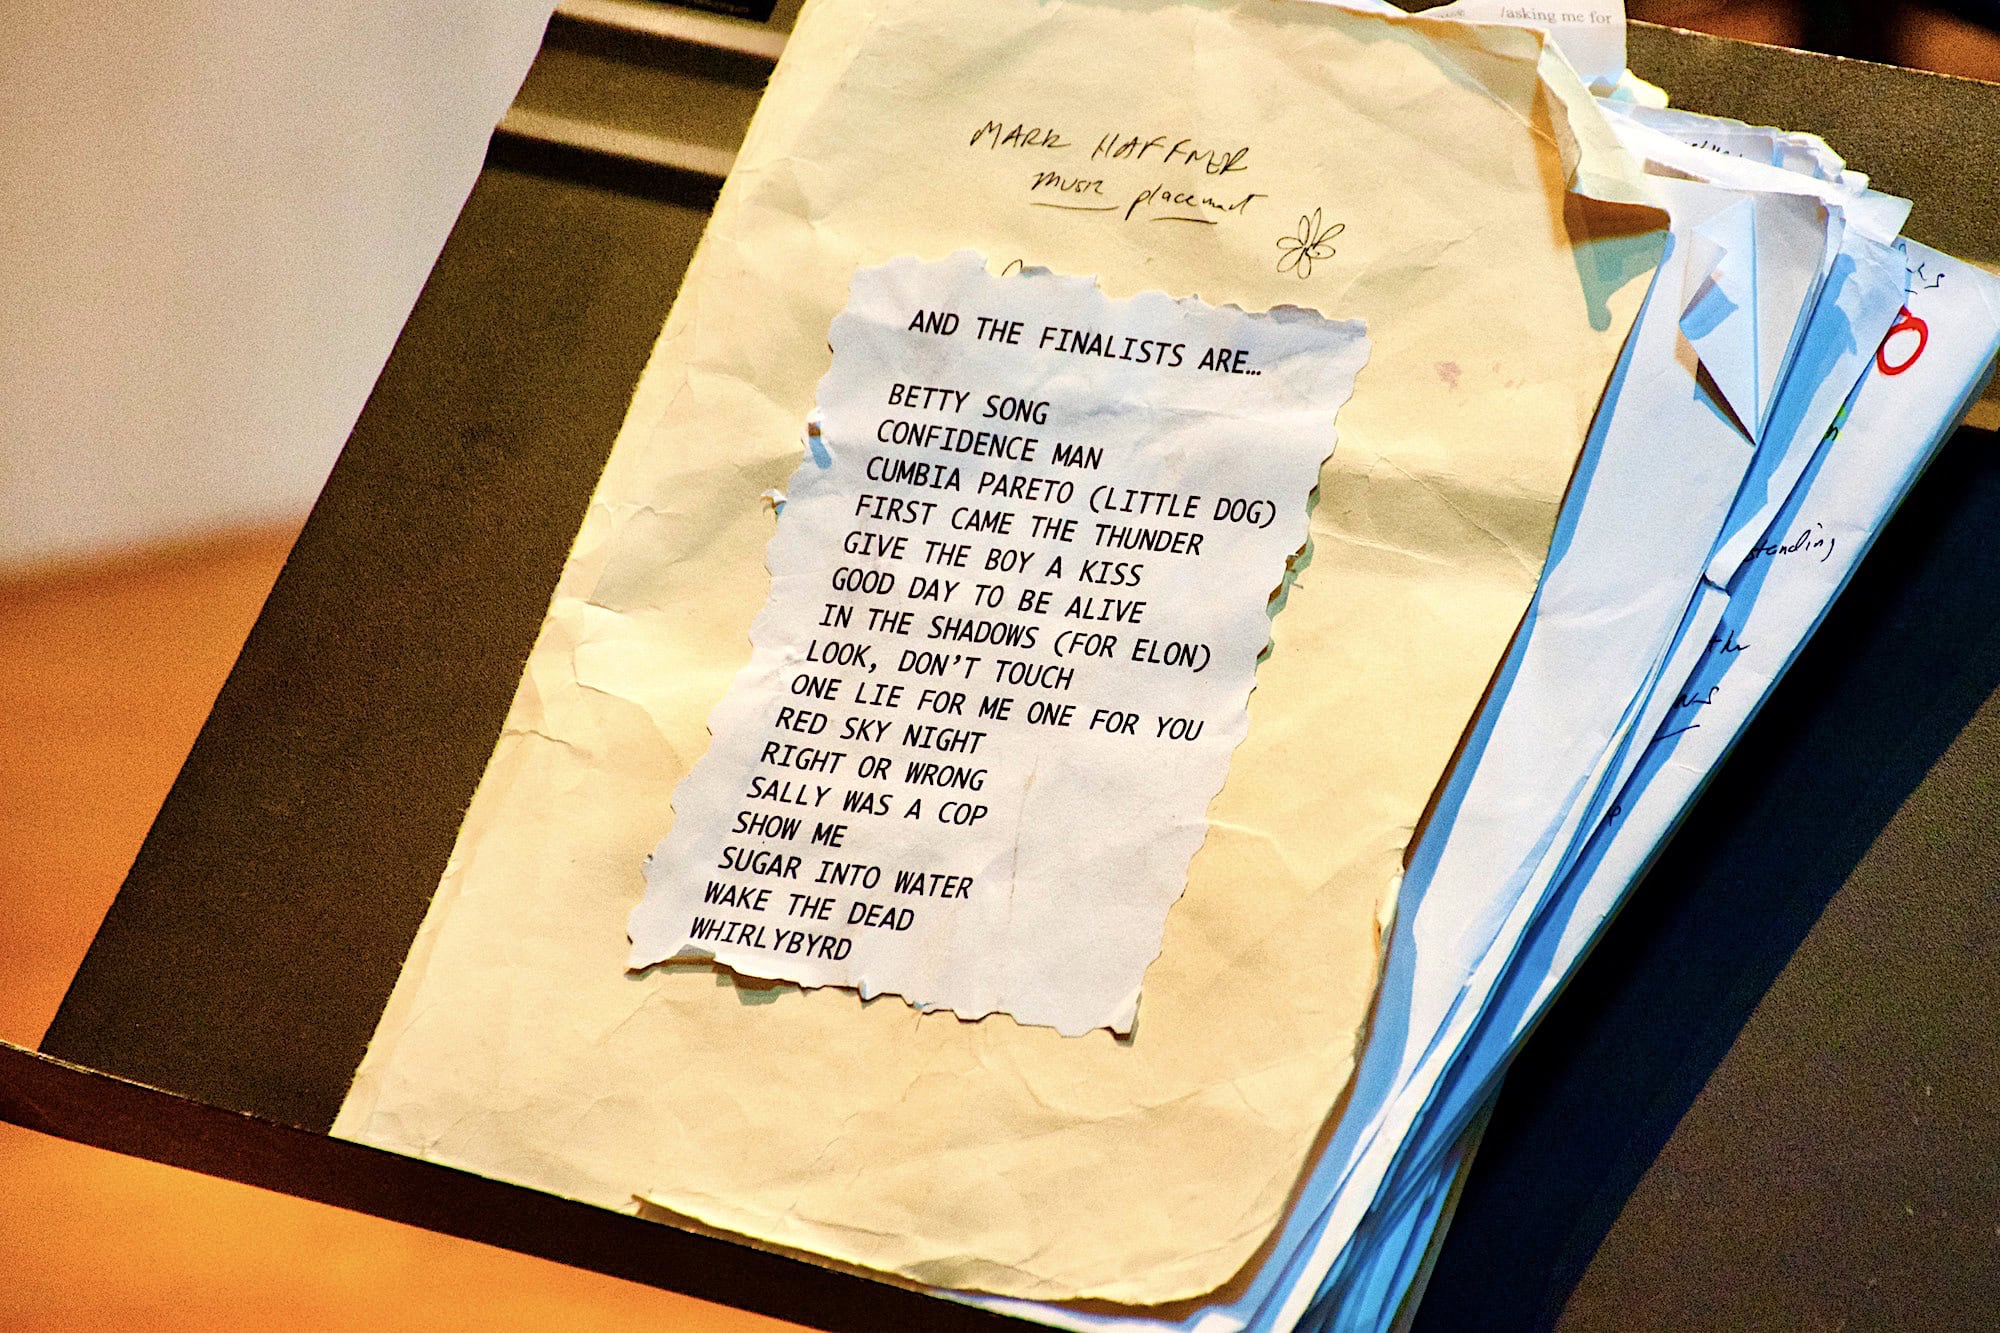 /asking me for
MARK HAFFNER
music placement
AND THE FINALISTS ARE…
BETTY SONG
CONFIDENCE MAN
CUMBIA PARETO (LITTLE DOG)
FIRST CAME THE THUNDER
GIVE THE BOY A KISS
GOOD DAY TO BE ALIVE
IN THE SHADOWS (FOR ELON)
LOOK, DON'T TOUCH
ONE LIE FOR ME ONE FOR YOU
RED SKY NIGHT
RIGHT OR WRONG
SALLY WAS A COP
SHOW ME
SUGAR INTO WATER
WAKE THE DEAD
WHIRLYBYRD
standing
the